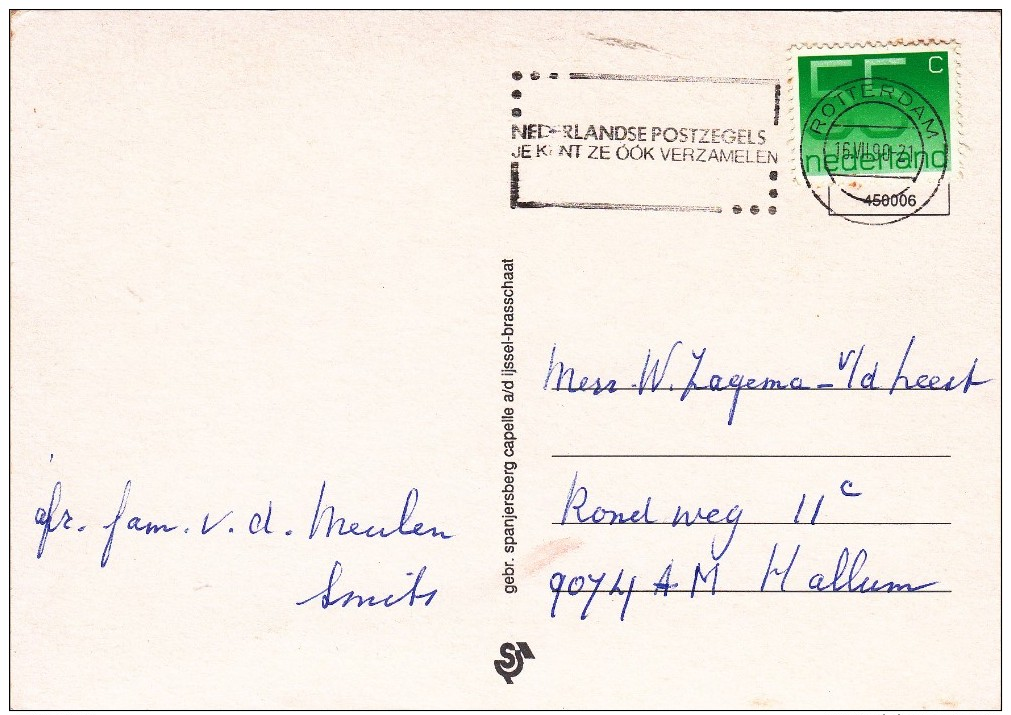 55 C
nederland
ROTTERDAM
16.VII.90-21
450006
NEDERLANDSE POSTZEGELS
JE KUNT ZE ÓÓK VERZAMELEN
gebr. spanjersberg capelle a/d ijssel-brasschaat
afr. fam. v. d. Meulen
Smits
W. Zagema - v/d Leest
Rondweg 11c
9074 AM Hallum